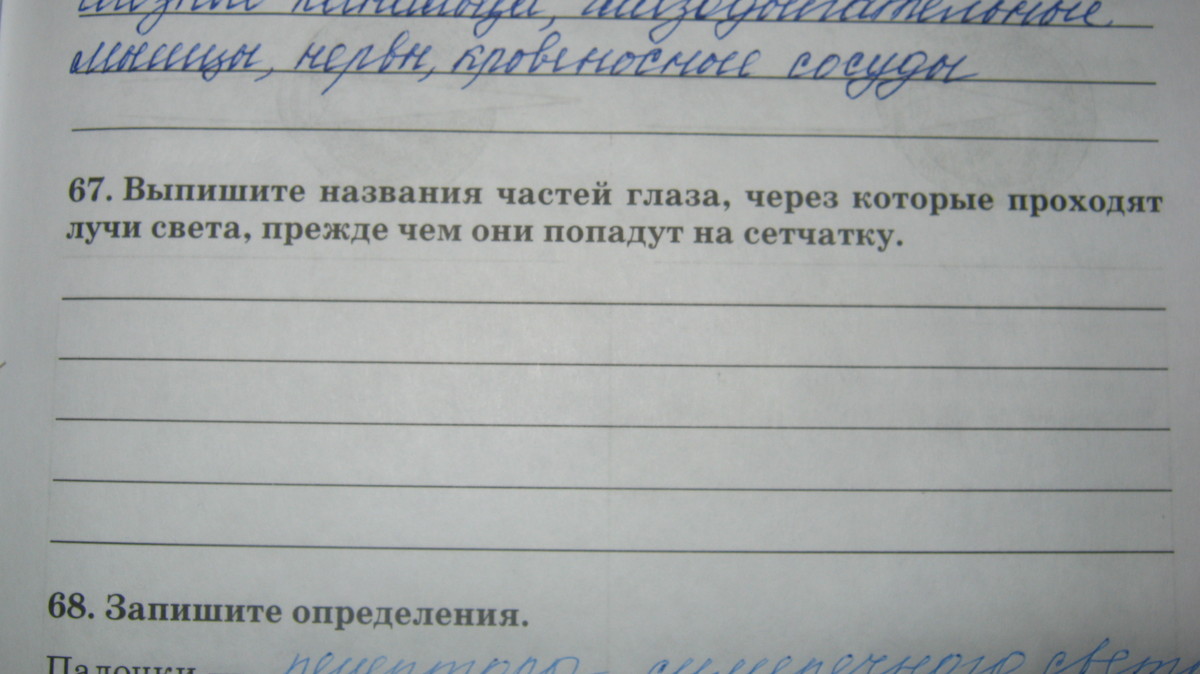 глазодвигательные
мышцы, нервы, кровеносные сосуды
67. Выпишите названия частей глаза, через которые проходят
лучи света, прежде чем они попадут на сетчатку.
68. Запишите определения.
Палочки рецепторы сумеречного света